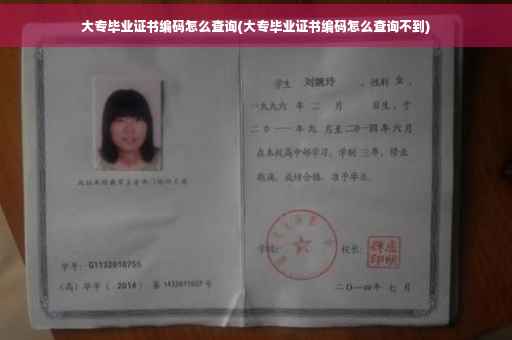 大专毕业证书编码怎么查询(大专毕业证书编码怎么查询不到)
学生 刘婉玲 ，性别 女 ，
一九九六 年 二 月 日生，于
二〇一一 年 九 月至 二〇一四 年 六 月
在本校高中部学习，学制 三 年，修业
期满，成绩合格，准予毕业。
学号：G1132010755
(高) 毕字 ( 2014 ) 第 1432011027 号
学校：
校长：
二〇一四年 七 月